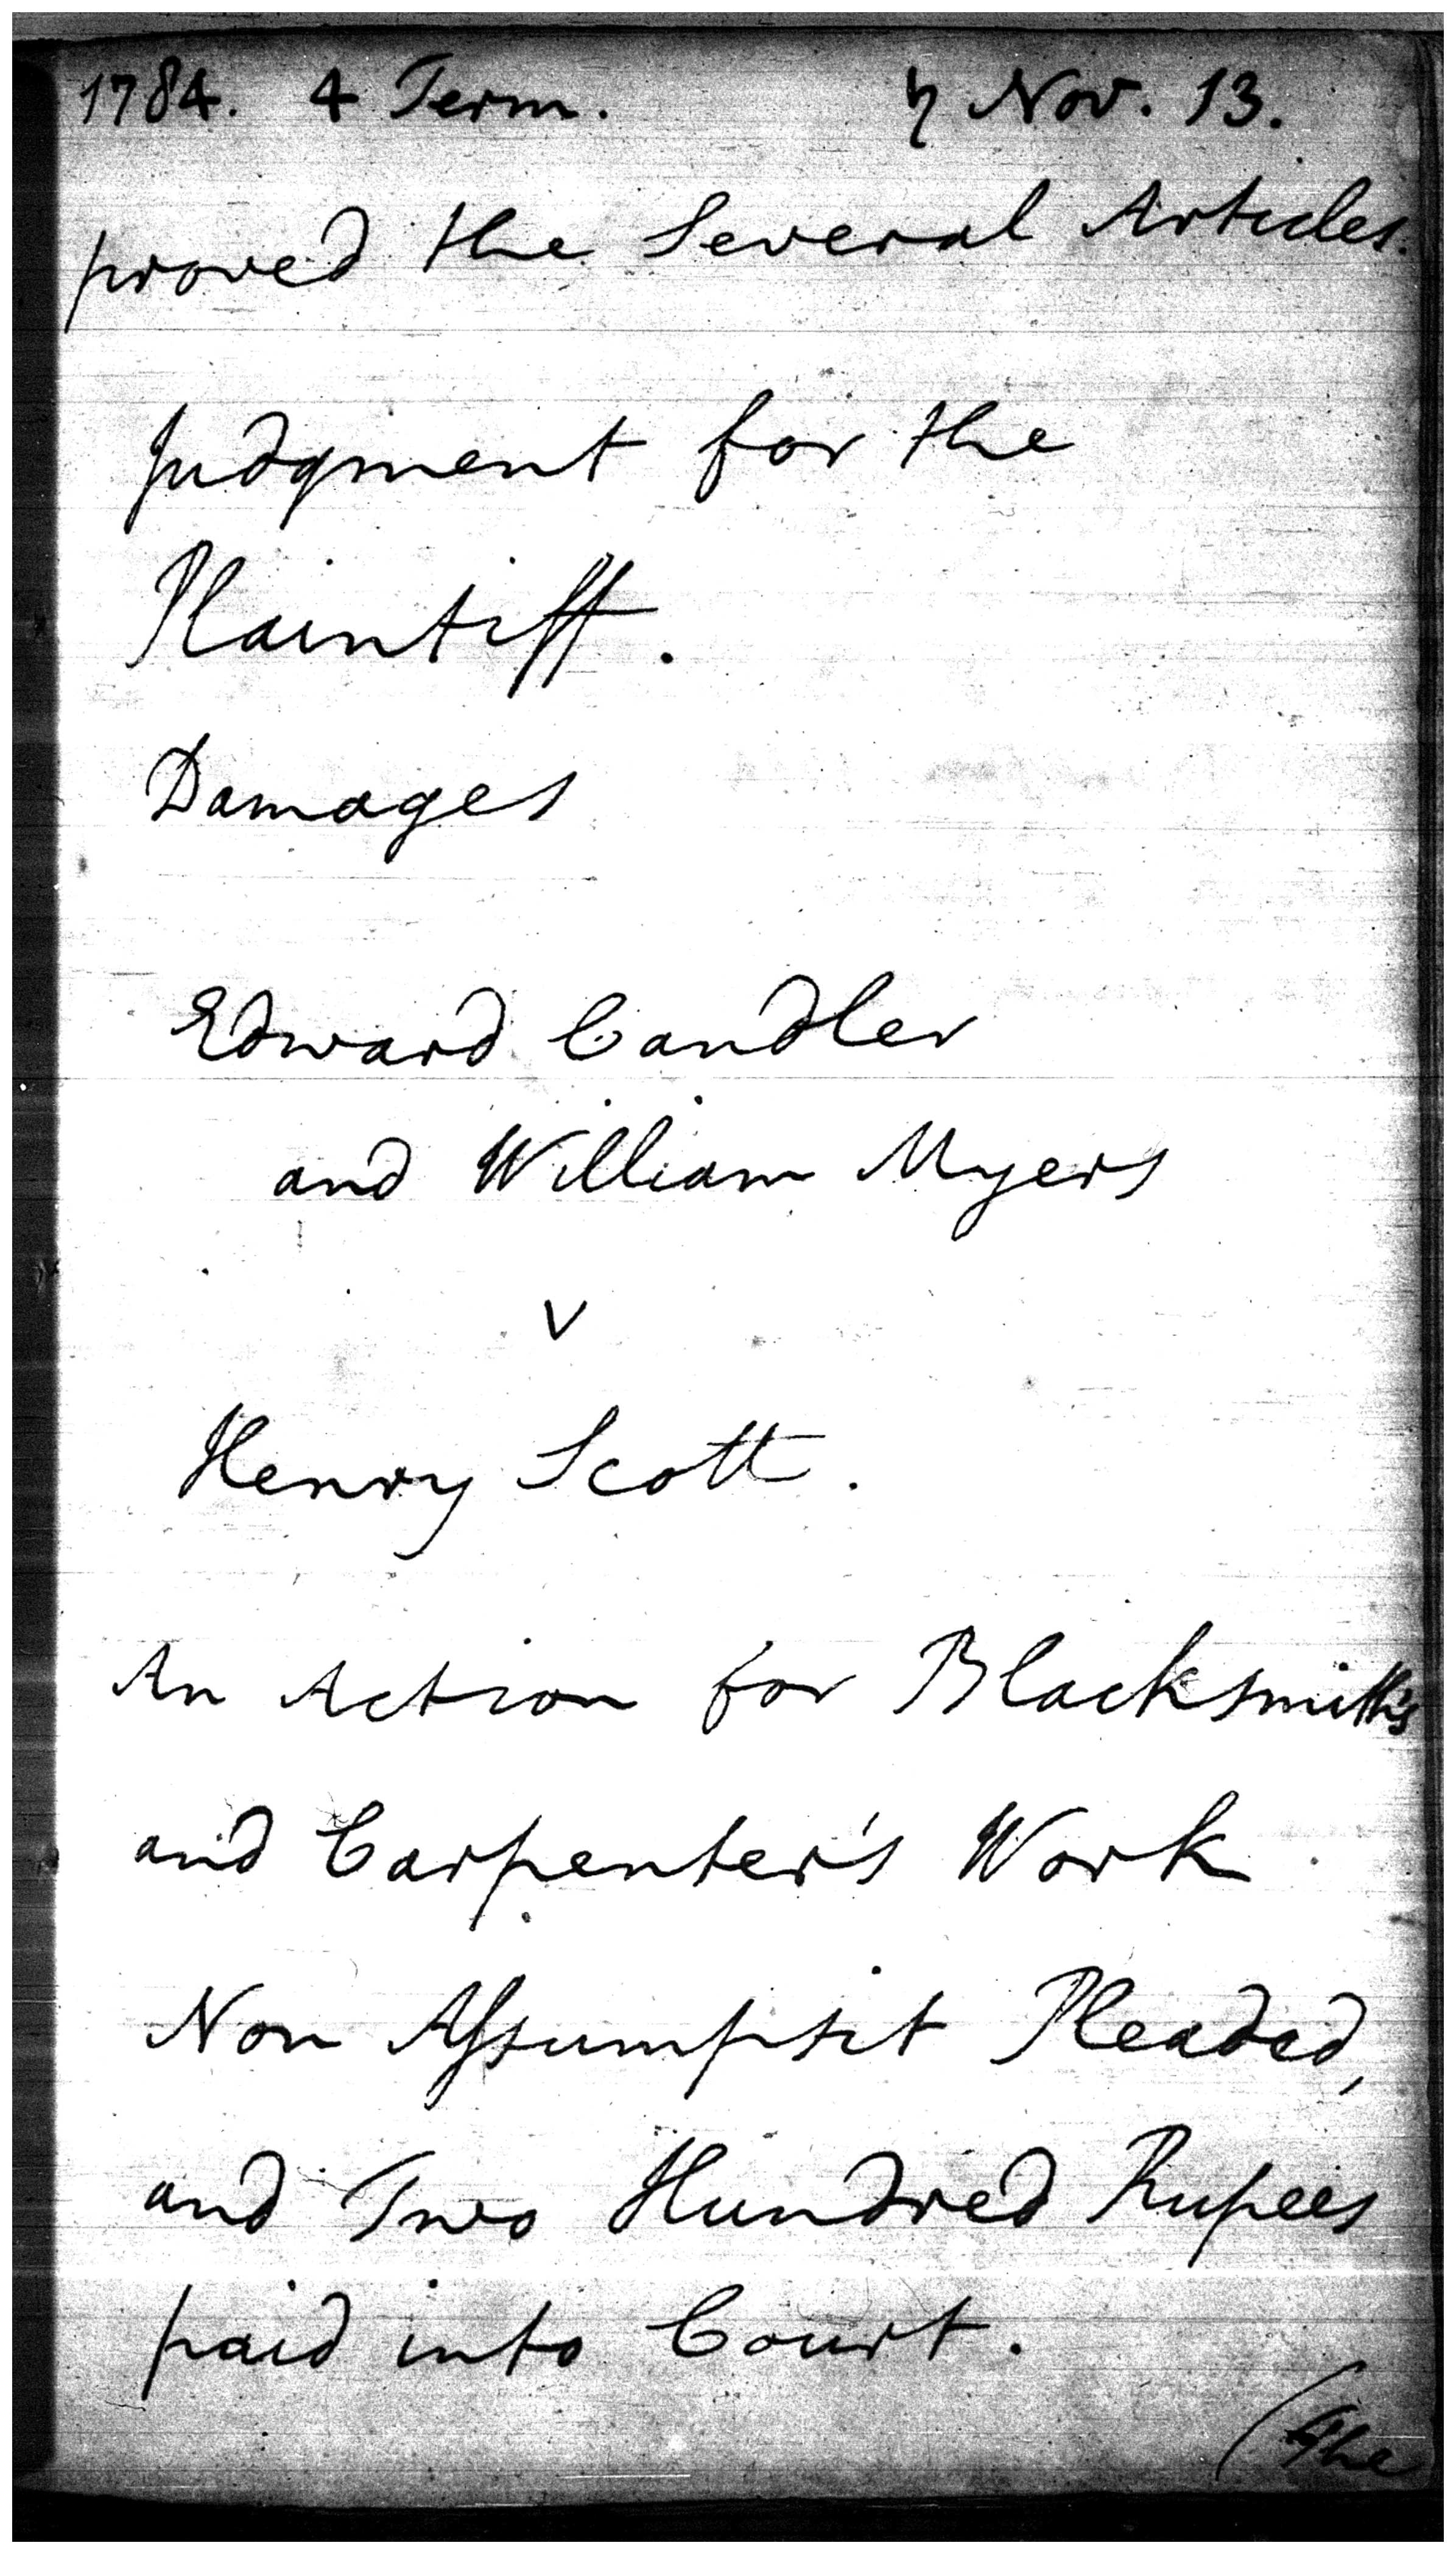 1784. 4 Term. ♄ Nov. 13.
proved the Several Articles.
Judgment for the
Plaintiff.
Damages
Edward Candler
and William Myers
v
Henry Scott.
An Action for Blacksmith's
and Carpenter's Work
Non Assumpsit Pleaded,
and Two Hundred Rupees
paid into Court.
(The